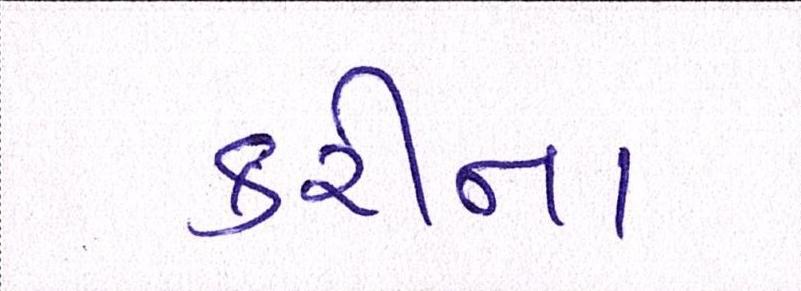 કરીના